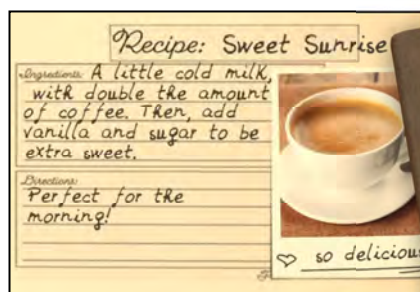 Recipe: Sweet Sunrise
Ingredients: A little cold milk,
with double the amount
of coffee. Then, add
vanilla and sugar to be
extra sweet.
Directions:
Perfect for the
morning!
so delicious